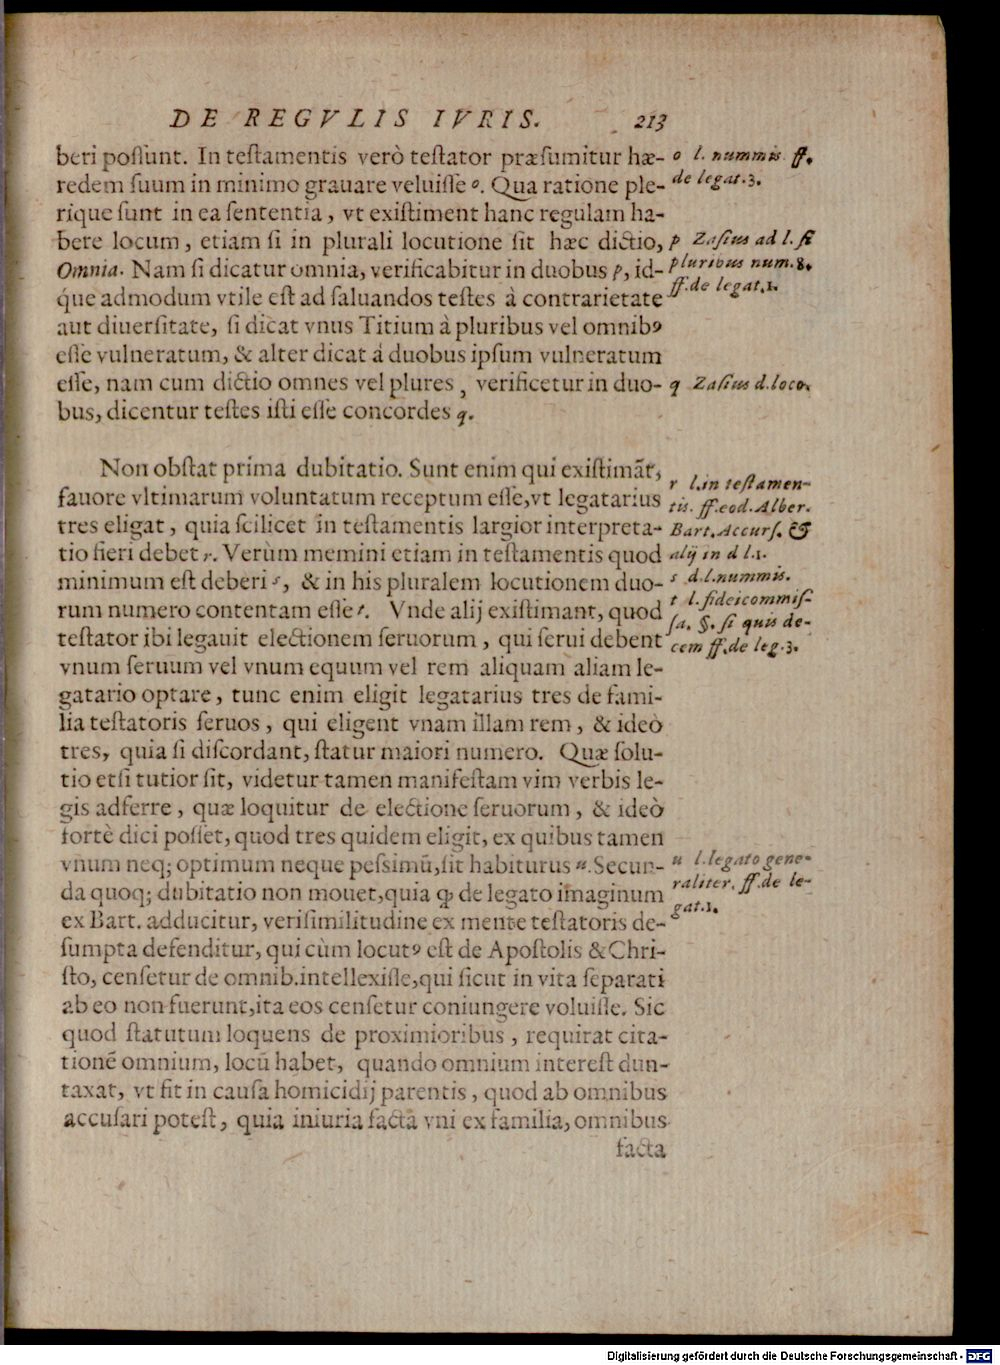 DE REGVLIS IVRIS. 213
beri possunt. In testamentis verò testator præsumitur hæ-
redem suum in minimo grauare veluisse o. Qua ratione ple-
rique sunt in ea sententia, vt existiment hanc regulam ha-
bere locum, etiam si in plurali locutione sit hæc dictio,
Omnia. Nam si dicatur omnia, verificabitur in duobus p, id-
q́ue admodum vtile est ad saluandos testes à contrarietate
aut diuersitate, si dicat vnus Titium à pluribus vel omnibꝰ
esse vulneratum, & alter dicat á duobus ipsum vulneratum
esse, nam cum dictio omnes vel plures, verificetur in duo-
bus, dicentur testes isti esse concordes q.
Non obstat prima dubitatio. Sunt enim qui existimāt,
fauore vltimarum voluntatum receptum esse, vt legatarius
tres eligat, quia scilicet in testamentis largior interpreta-
tio fieri debet r. Verùm memini etiam in testamentis quod
minimum est deberi s, & in his pluralem locutionem duo-
rum numero contentam esse t. Vnde alij existimant, quod
testator ibi legauit electionem seruorum, qui serui debent
vnum seruum vel vnum equum vel rem aliquam aliam le-
gatario optare, tunc enim eligit legatarius tres de fami-
lia testatoris seruos, qui eligent vnam illam rem, & ideò
tres, quia si discordant, statur maiori numero. Quæ solu-
tio etsi tutior sit, videtur tamen manifestam vim verbis le-
gis adferre, quæ loquitur de electione seruorum, & ideò
fortè dici posset, quod tres quidem eligit, ex quibus tamen
vnum neq; optimum neque pessimū, sit habiturus u. Secun-
da quoq; dubitatio non mouet, quia ꝙ de legato imaginum
ex Bart. adducitur, verisimilitudine ex mente testatoris de-
sumpta defenditur, qui cùm locutꝰ est de Apostolis & Chri-
sto, censetur de omnib. intellexisse, qui sicut in vita separati
ab eo non fuerunt, ita eos censetur coniungere voluisse. Sic
quod statutum loquens de proximioribus, requirat cita-
tionē omnium, locū habet, quando omnium interest dun-
taxat, vt fit in causa homicidij parentis, quod ab omnibus
accusari potest, quia iniuria facta vni ex familia, omnibus
facta
o l. nummis. ff.
de legat. 3.
p Zasius ad l. si
pluribus num. 8.
ff. de legat. 1.
q Zasius d. loco.
r l. in testamen-
tis. ff. eod. Alber.
Bart. Accurs. &
alij in d l. 1.
s d. l. nummis.
t l. fideicommis-
sa. §. si quis de-
cem ff. de leg. 3.
u l. legato gene-
raliter. ff. de le-
gat. 1.
Digitalisierung gefördert durch die Deutsche Forschungsgemeinschaft - DFG